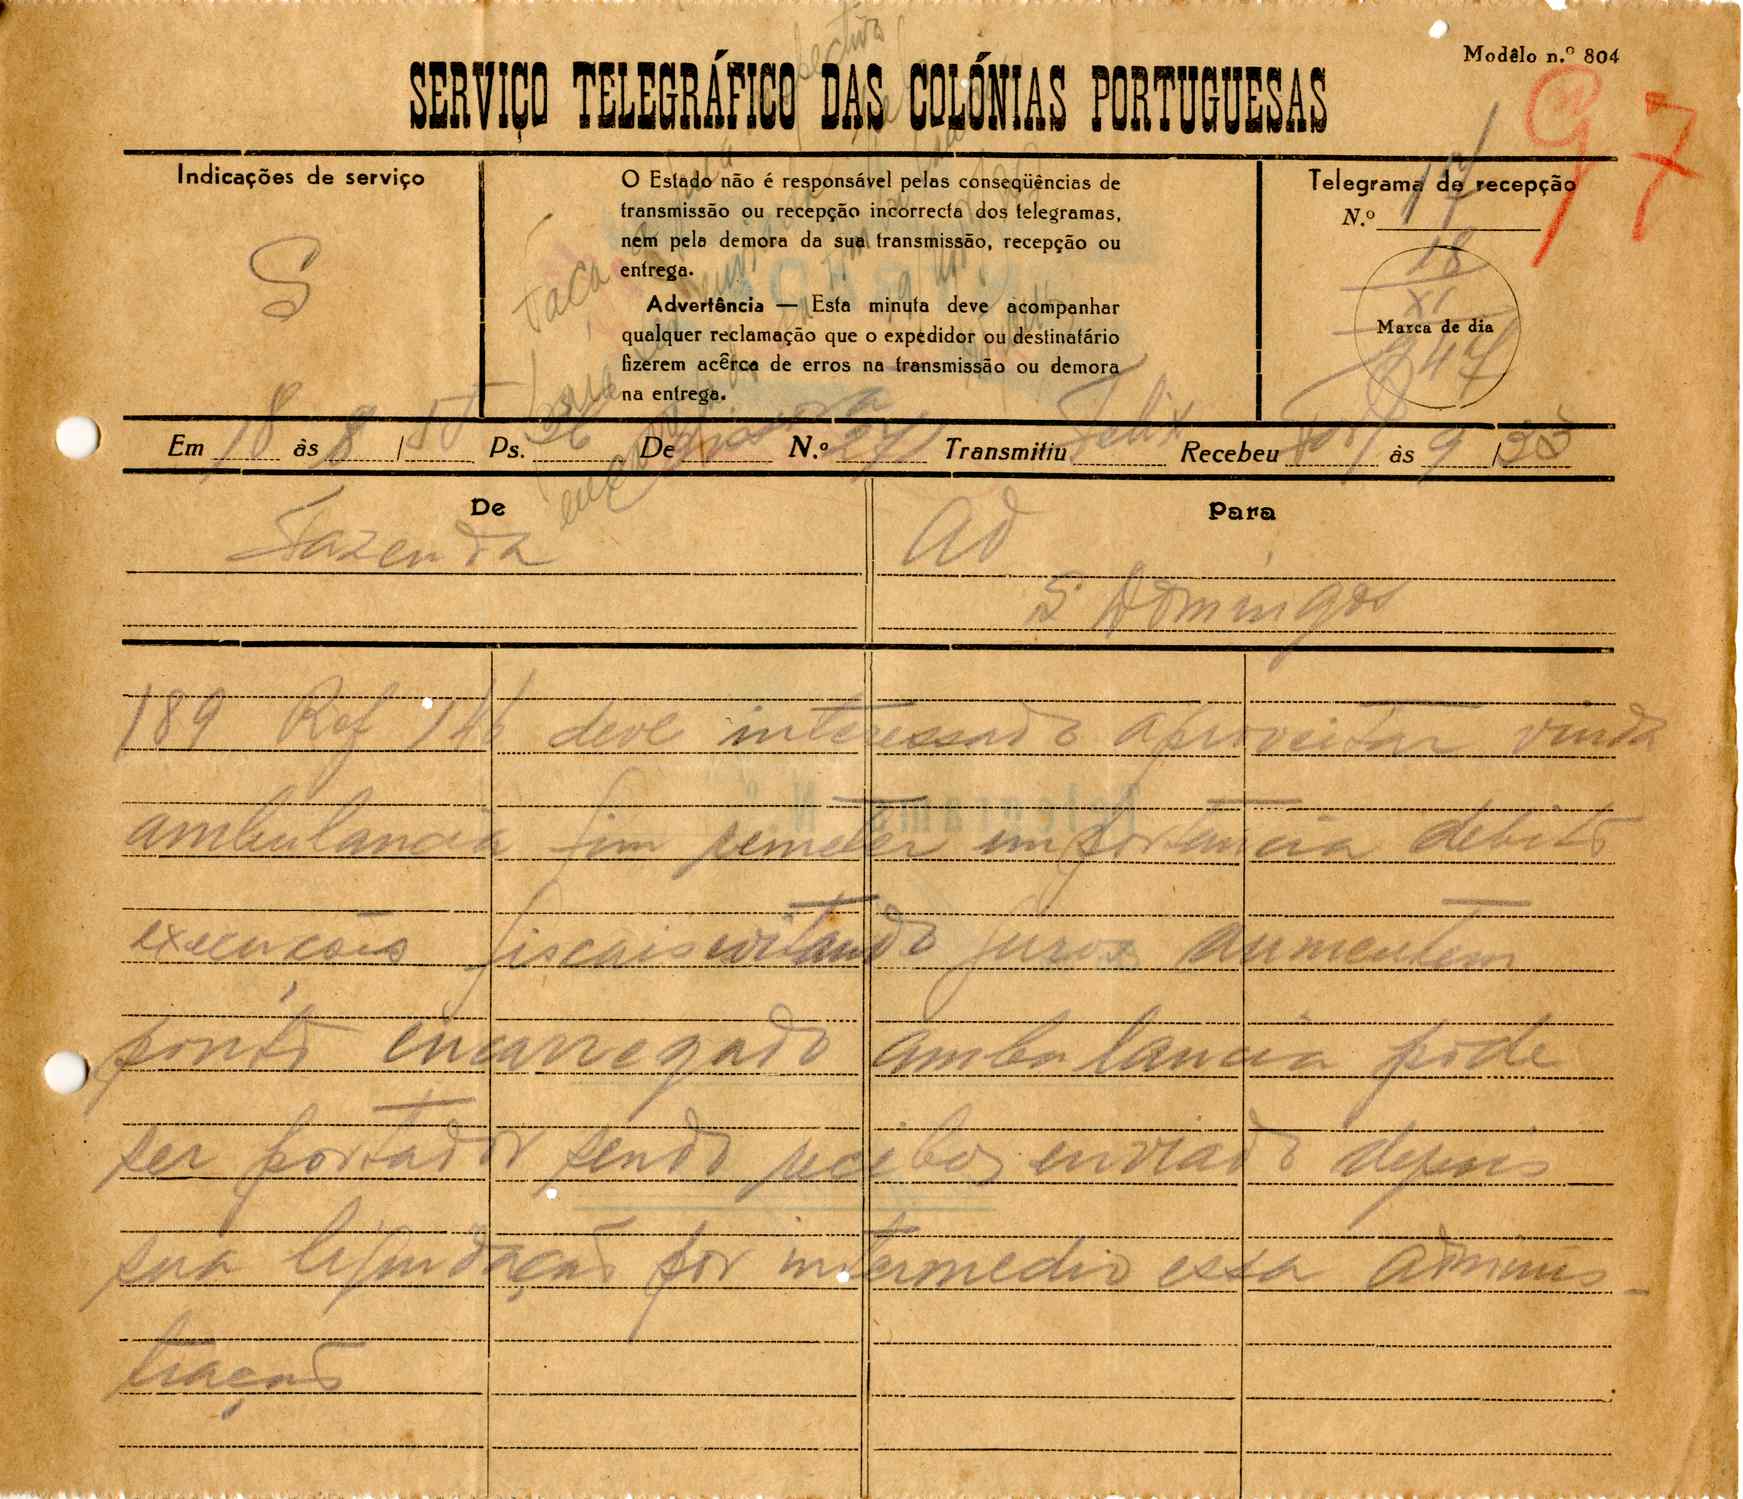 Modêlo n.º 804
SERVIÇO TELEGRÁFICO DAS COLÓNIAS PORTUGUESAS
97
Indicações de serviço
S
O Estado não é responsável pelas conseqüências de
transmissão ou recepção incorrecta dos telegramas,
nem pela demora da sua transmissão, recepção ou
entrega.
Advertência — Esta minuta deve acompanhar
qualquer reclamação que o expedidor ou destinatário
fizerem acêrca de erros na transmissão ou demora
na entrega.
Telegrama de recepção
N.º 17
18
XI
Marca de dia
947
Em 18 às 8 / 50 Ps. 36 De N.º 271 Transmitiu Felix Recebeu às 9 / 33
De
Fazenda
Para
Ad
S Domingos
189 Ref 146 deve interessado aproveitar vinda
ambulancia fim remeter importancia debito
execuções fiscais evitando juros aumentem
ponto encarregado ambulancia pode
ser portador sendo recibos enviado depois
sua liquidação por intermedio essa adminis-
tração